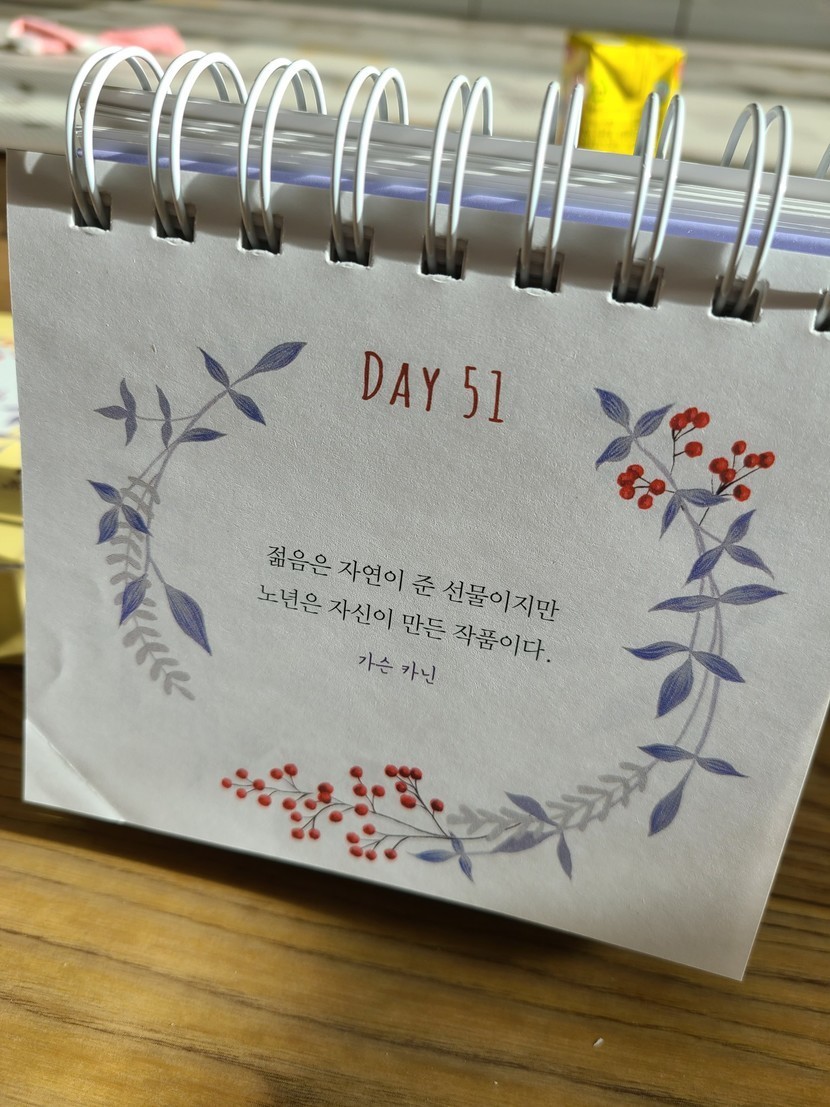 DAY 51
젊음은 자연이 준 선물이지만
노년은 자신이 만든 작품이다.
가슨 카닌